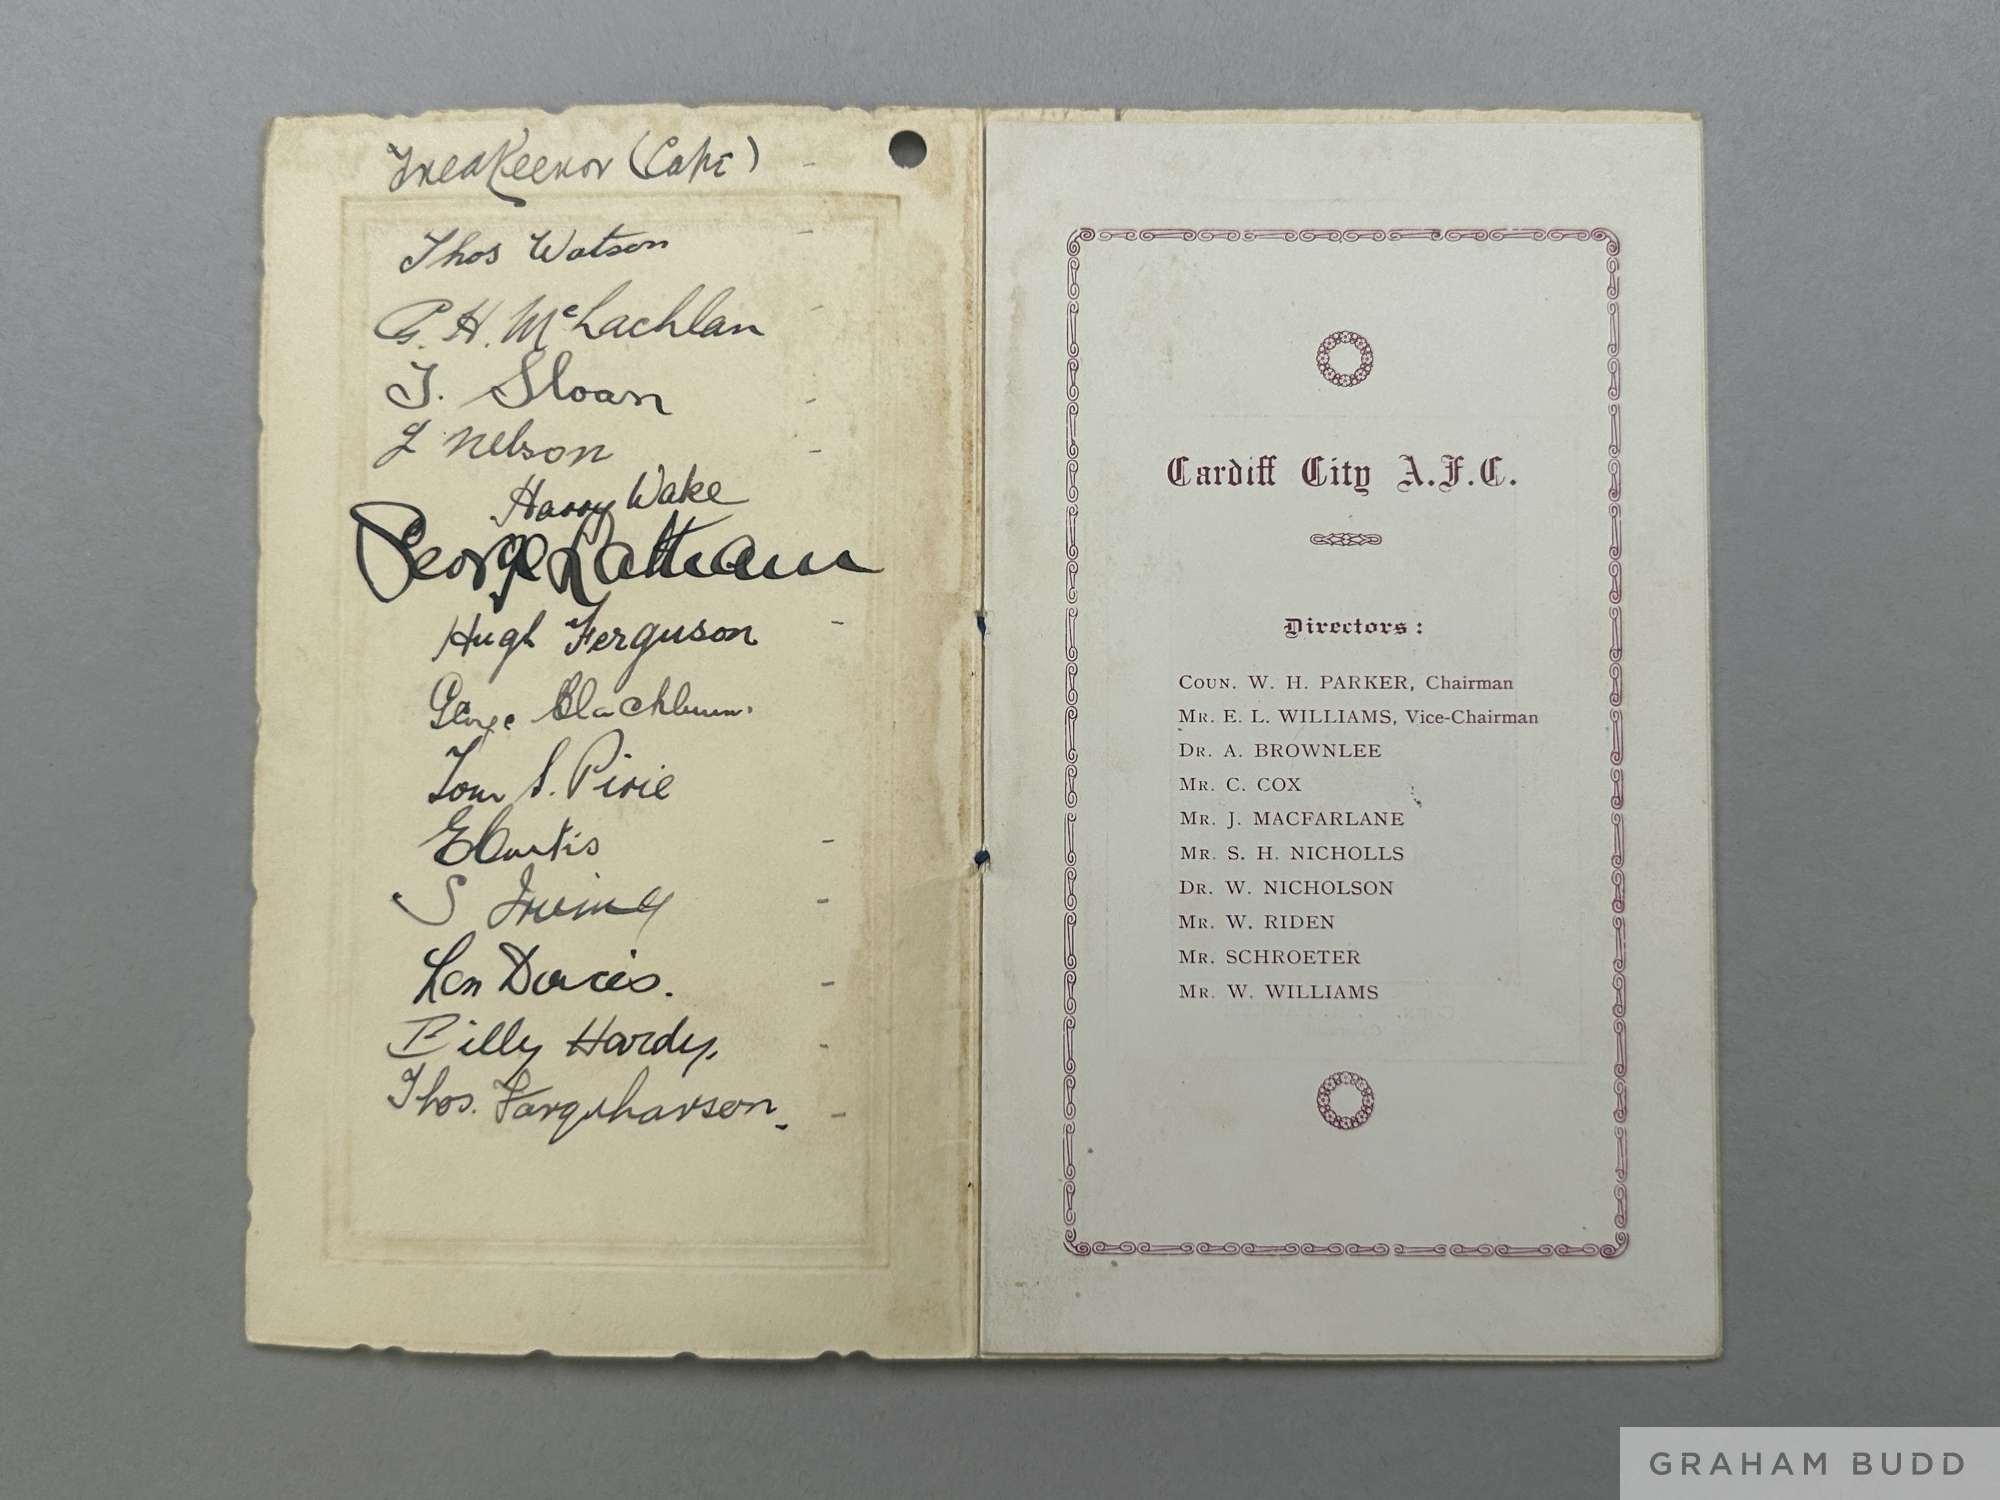 Fred Keenor (Capt)
Thos Watson
G. H. McLachlan
T. Sloan
J Nelson
Harry Wake
George Latham
Hugh Ferguson
George Blackburn.
Tom S. Pirie
E Curtis
S Irving
Len Davies.
Billy Hardy.
Thos. Farquharson.
Cardiff City A.F.C.
Directors:
COUN. W. H. PARKER, Chairman
MR. E. L. WILLIAMS, Vice-Chairman
DR. A. BROWNLEE
MR. C. COX
MR. J. MACFARLANE
MR. S. H. NICHOLLS
DR. W. NICHOLSON
MR. W. RIDEN
MR. SCHROETER
MR. W. WILLIAMS
GRAHAM BUDD